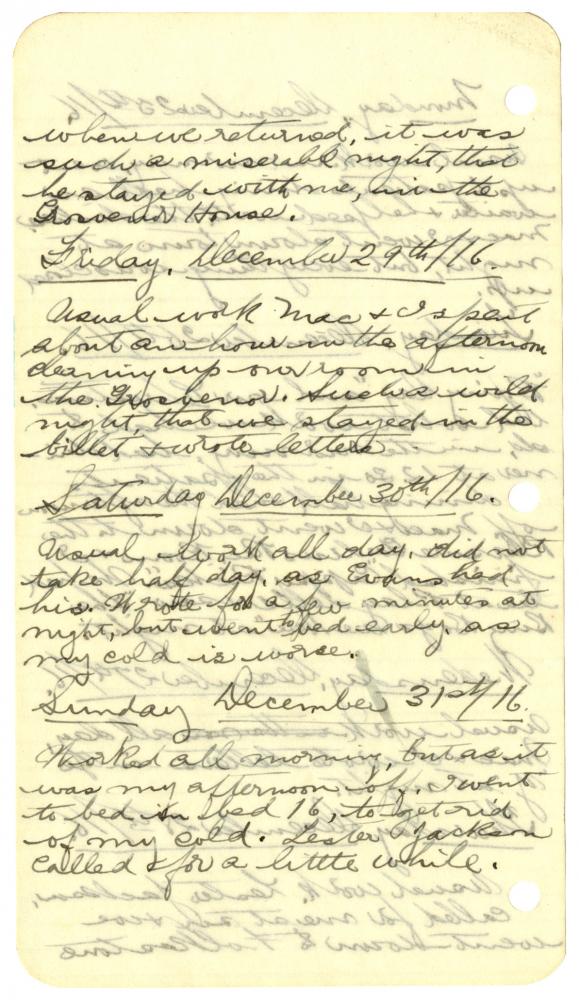 when we returned, it was
such a miserable night, that
he stayed with me, in the
Grosvenor House.
Friday, December 29th/16.
Usual work Mac & I spent
about an hour in the afternoon
cleaning up our room in
the Grosvenor. Such a wild
night, that we stayed in the
billet & wrote letters
Saturday December 30th/16.
Usual work all day, did not
take half day, as Evans had
his. Wrote for a few minutes at
night, but went to bed early, as
my cold is worse.
Sunday December 31st/16.
Worked all morning, but as it
was my afternoon off, I went
to bed in bed 16, to get rid
of my cold. Lester Jackson
called for a little while.